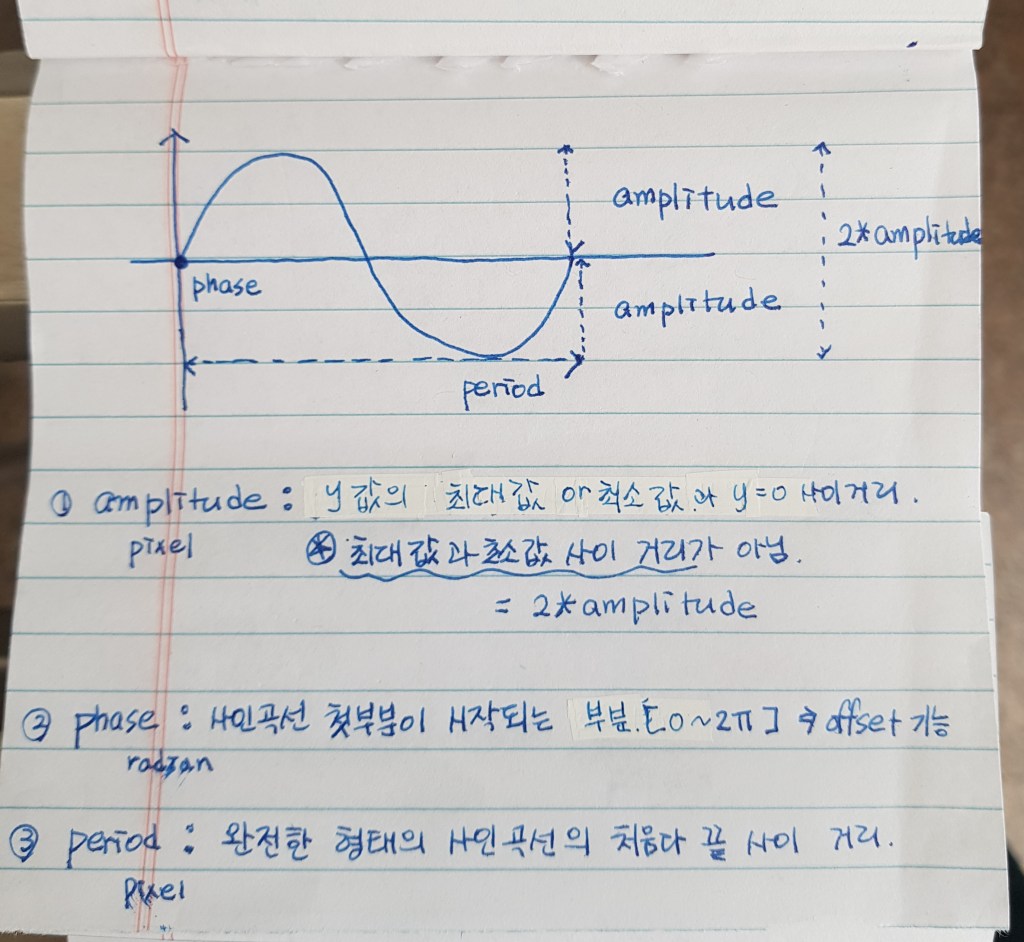 amplitude
2*amplitude
phase
amplitude
period
① amplitude : y값의 최대값 or 최소값과 y=0 사이거리.
pixel
⊛ 최대값과 최소값 사이 거리가 아님.
= 2*amplitude
② phase : 사인곡선 첫부분이 시작되는 부분.[0~2π] → offset 기능
radian
③ period : 완전한 형태의 사인곡선의 처음과 끝 사이 거리.
pixel